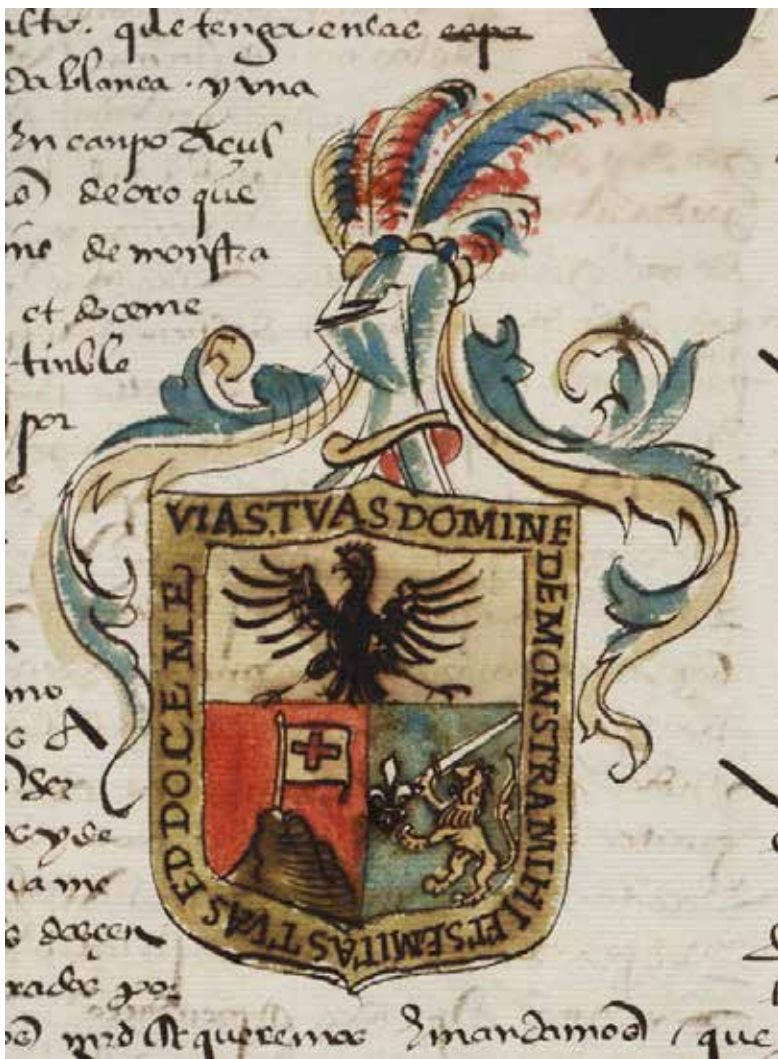 alto. que tenga en las
da blanca. y una
en canpo açul
de oro que
ine demonstra
et doceme
tinble
por
VIAS TVAS DOMINE
DEMONSTRAMIHI
ETSEMITAS TVAS
EDDOCEME
mo
os y de
ia me
s desçen
rados por
queremos y mandamos que